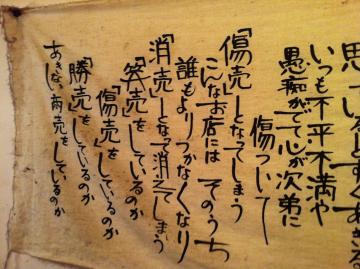 思っているとすぐあきる
いつも不平不満や
愚痴がでて心が次第に
傷ついて
「傷売」となってしまう
こんなお店には そのうち
誰もよりつかなくなり
「消売」となって消えてしまう
「笑売」をしているのか
「傷売」をしているのか
「勝売」をしているのか
あきない商売をしているのか